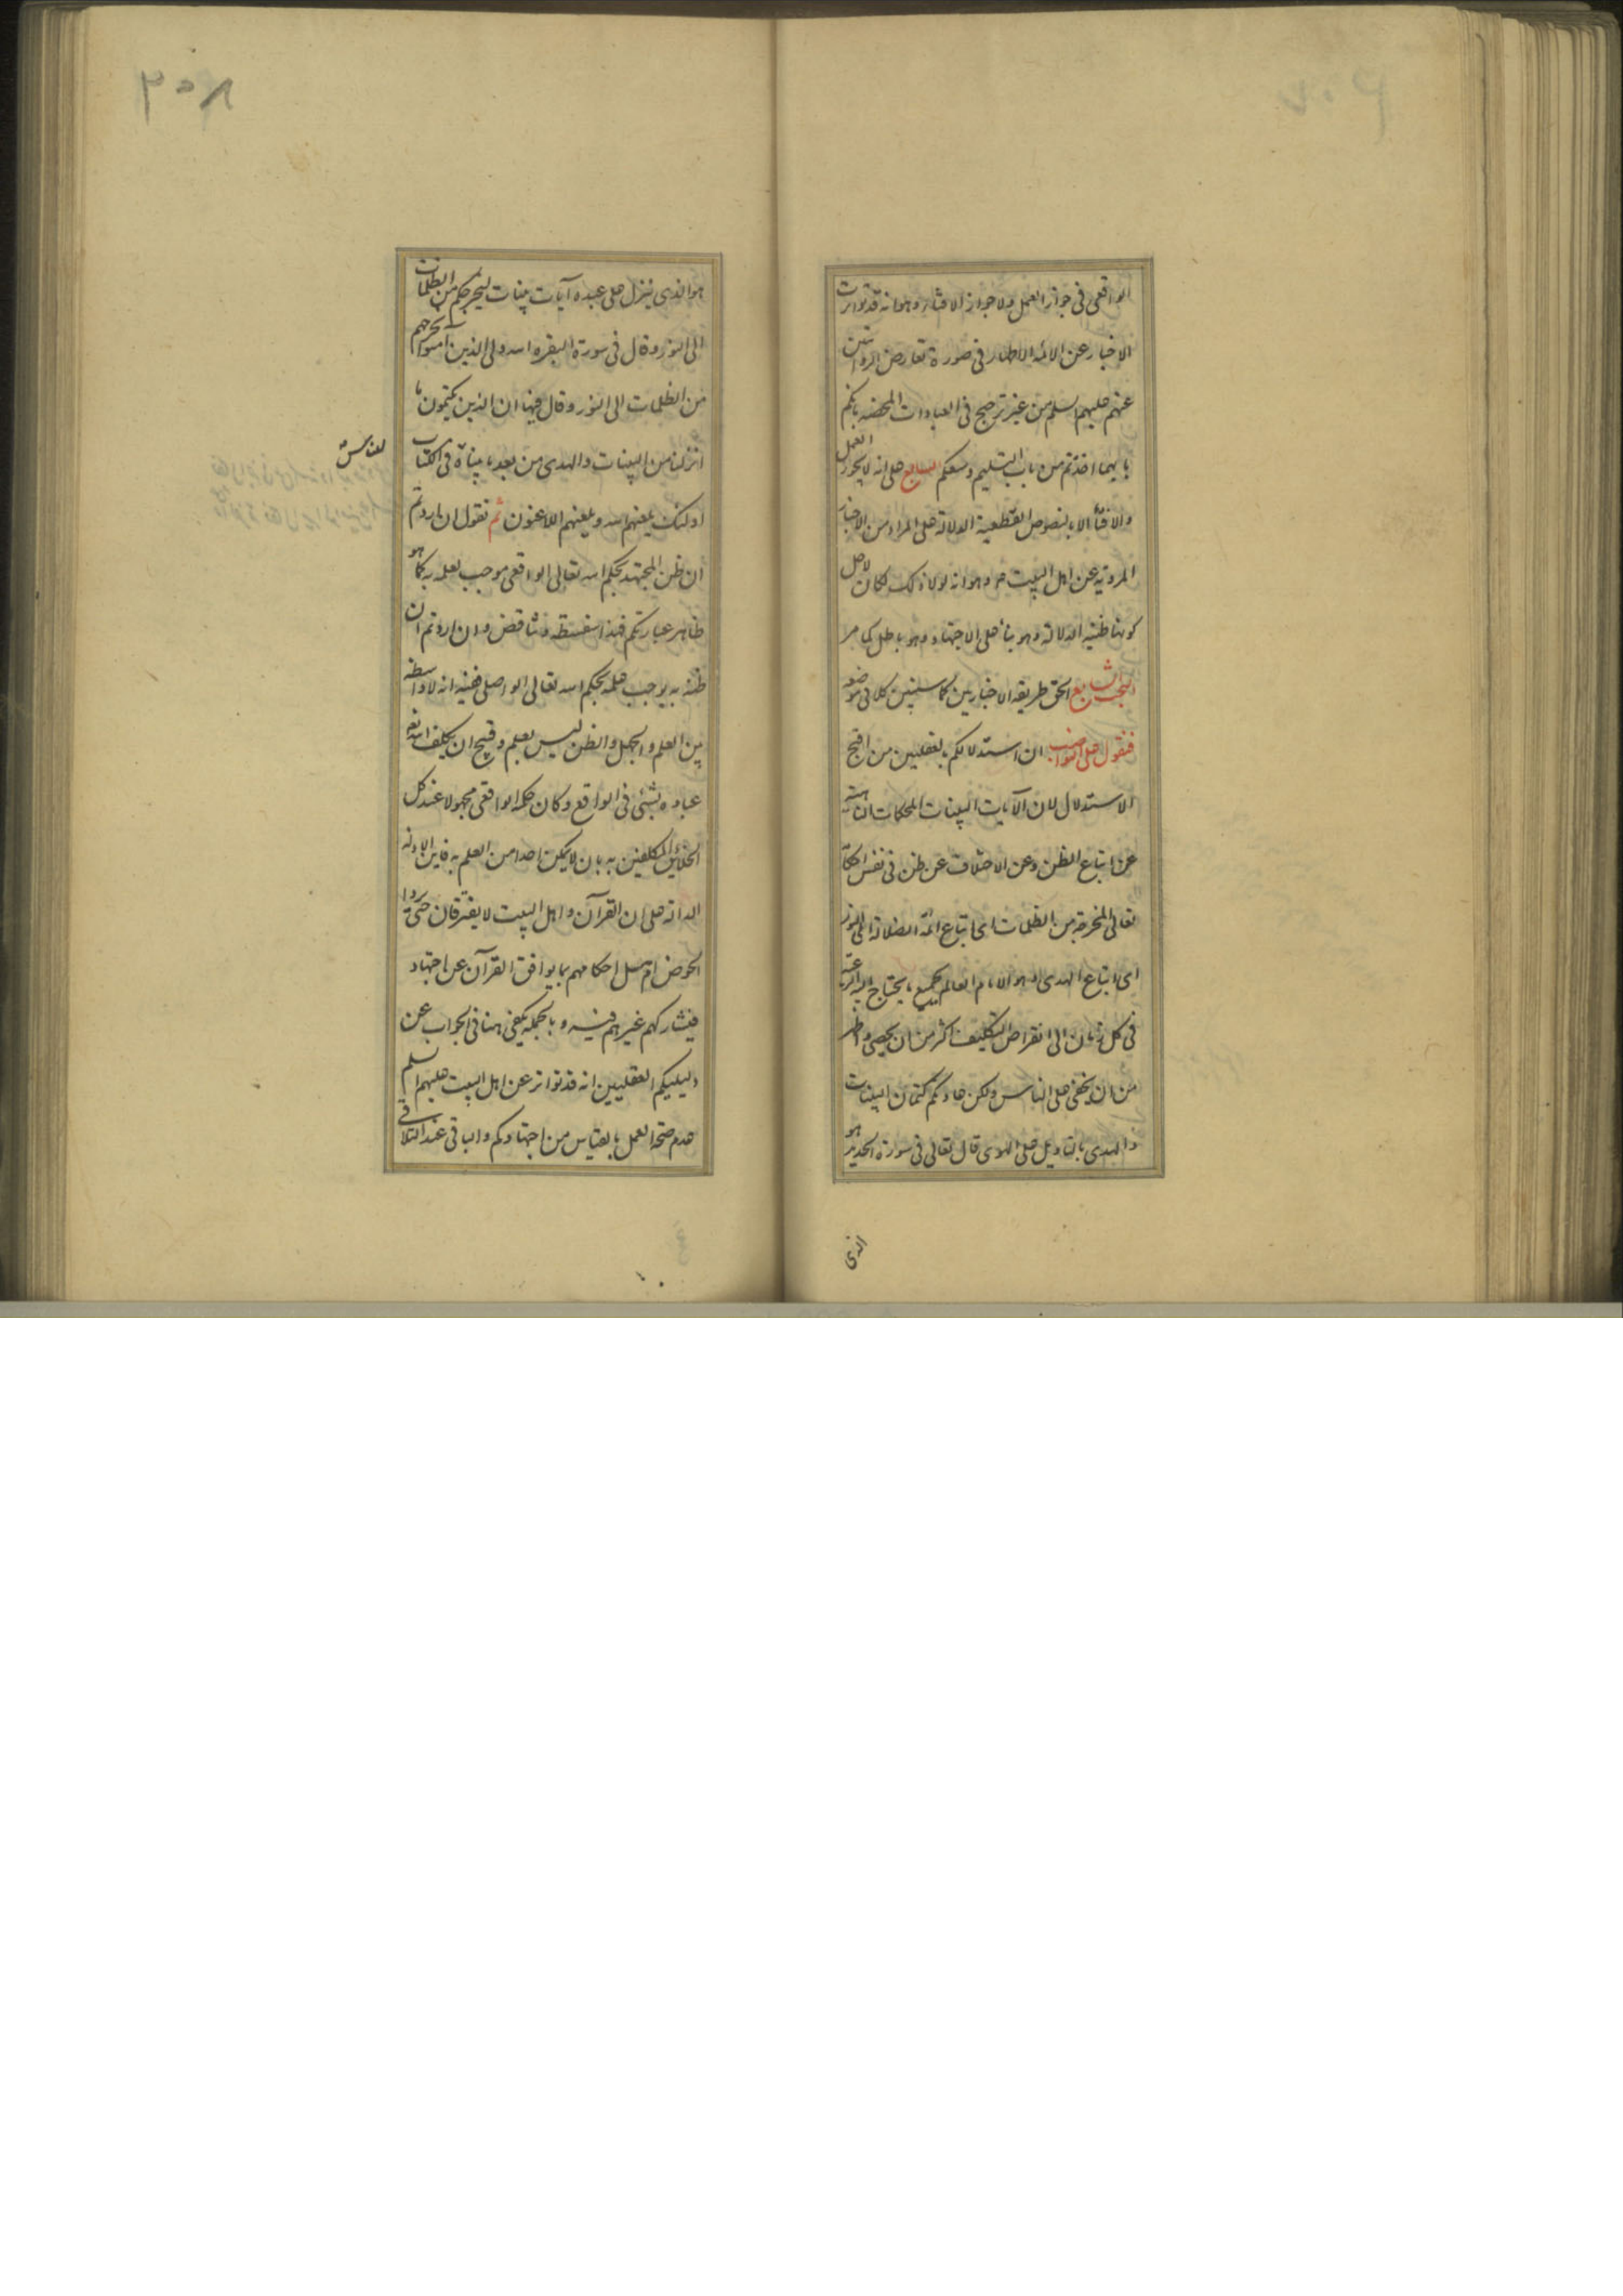 الواقعی فی جواز العمل ولا جواز الافتاء وهو انه قد تواترت
الاخبار عن الائمه الاطهار فی صورة تعارض الروایتین
عنهم علیهم السلم من غیر ترجیح فی العبادات المحضه بانکم
بایهما اخذتم من باب التسلیم وسعکم السابع علی انه لا یجوز العمل
والافتا الا بالنصوص القطعیة الدلالة علی المراد من الاخبار
المرویه عن اهل البیت وهو انه لولا ذلک لکان لاجل
کونها ظنیه الدلالة وهو بناء علی الاجتهاد وهو باطل کما مر
البحث السابع الحق طریقه الاخباریین کما سنبین کلا فی موضعه
فنقول علی النواصب ان استدلالکم بالعقلیین من اقبح
الاستدلال لان الآیات البینات المحکمات الناهیة
عن اتباع الظن وعن الاختلاف عن ظن فی نفس احکامه
تعالی المخرجة من الظلمات ای اتباع ائمة الضلالة الی النور
ای اتباع الهدی وهو الامام العالم بجمیع ما یحتاج الیه الرعیة
فی کل زمان الی انقراض التکلیف اکثر من ان یحصی واظهر
من ان یخفی علی الناس ولکن عادتکم کتمان البینات
والهدی بالتاویل علی الهوی قال تعالی فی سورة الحدید هو
الذی
۳۰۸
هو الذی ینزل علی عبده آیات بینات لیخرجکم من الظلمات
الی النور وقال فی سورة البقره الله ولی الذین آمنوا یخرجهم
من الظلمات الی النور وقال فیها ان الذین یکتمون ما
انزلنا من البینات والهدی من بعد ما بیناه فی الکتاب
للناس
اولئک یلعنهم الله ویلعنهم اللاعنون ثم نقول ان اردتم
ان ظن المجتهد بحکم الله تعالی الواقعی موجب لعلمه به کما هو
ظاهر عبارتکم فهذا سفسطة وتناقض وان اردتم ان
ظنه به یوجب علمه بحکم الله تعالی الواصلی ففیه انه لا واسطة
بین العلم والجهل والظن لیس بعلم وقبیح ان یکلف الله تعالی
عباده بشئی فی الواقع وکان حکمه الواقعی مجهولا عند کل
الخلائق المکلفین به بان لا یمکن احدا من العلم به فاین الادلة
الدالة علی ان القرآن واهل البیت لا یفترقان حتی یردا
الحوض ام هل احکامهم بما یوافق القرآن عن اجتهاد
فیشارکهم غیرهم فیه وبالجمله یکفی هنا فی الجواب عن
دلیلیکم العقلیین انه قد تواتر عن اهل البیت علیهم السلم
عدم صحة العمل بالقیاس من اجتهادکم والباقی عند التلاقی